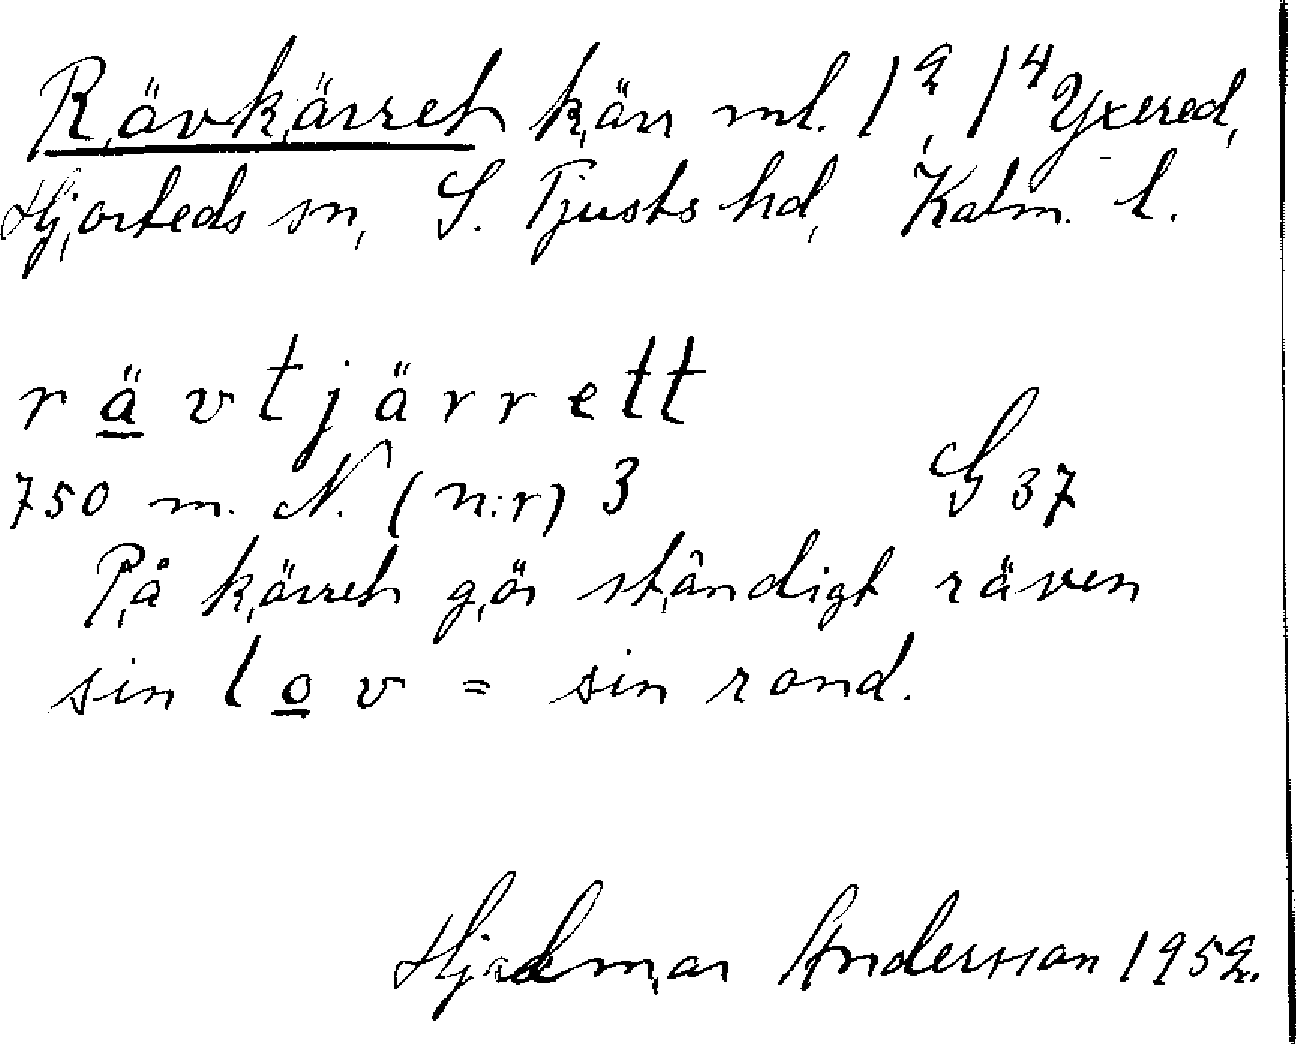 Rävkärret kärr ml. 1², 1⁴ Yxered,
Hjorteds sn, S. Tjusts hd, Kalm. l.
rävtjärrett
750 m. N. (n:r) 3 G 37
På kärret gör ständigt räven
sin lov = sin rond.
Hjalmar Andersson 1952.